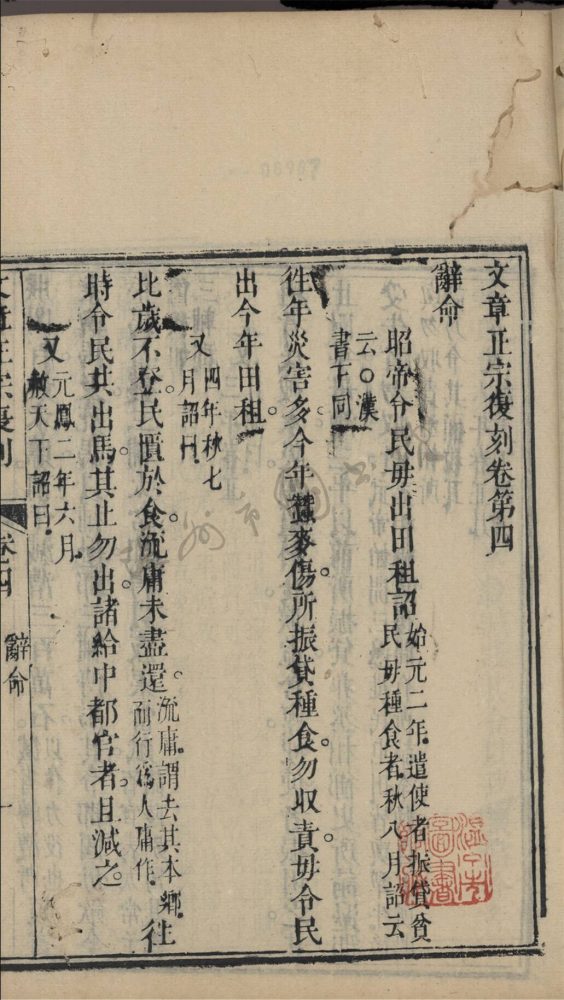 文章正宗復刻卷第四
辭命
昭帝令民毋出田租詔始元二年遣使者振貸貧
民毋種食者秋八月詔云
云○漢
書下同
往年災害多今年蠶麥傷所振貸種食勿收責毋令民
出今年田租
又四年秋七
月詔曰
比歲不登民匱於食流庸未盡還流庸謂去其本鄉
而行爲人庸作
往
時令民共出馬其止勿出諸給中都官者且減之
又元鳳二年六月
赦天下詔曰
文章正宗復刻
卷四
辭命
一